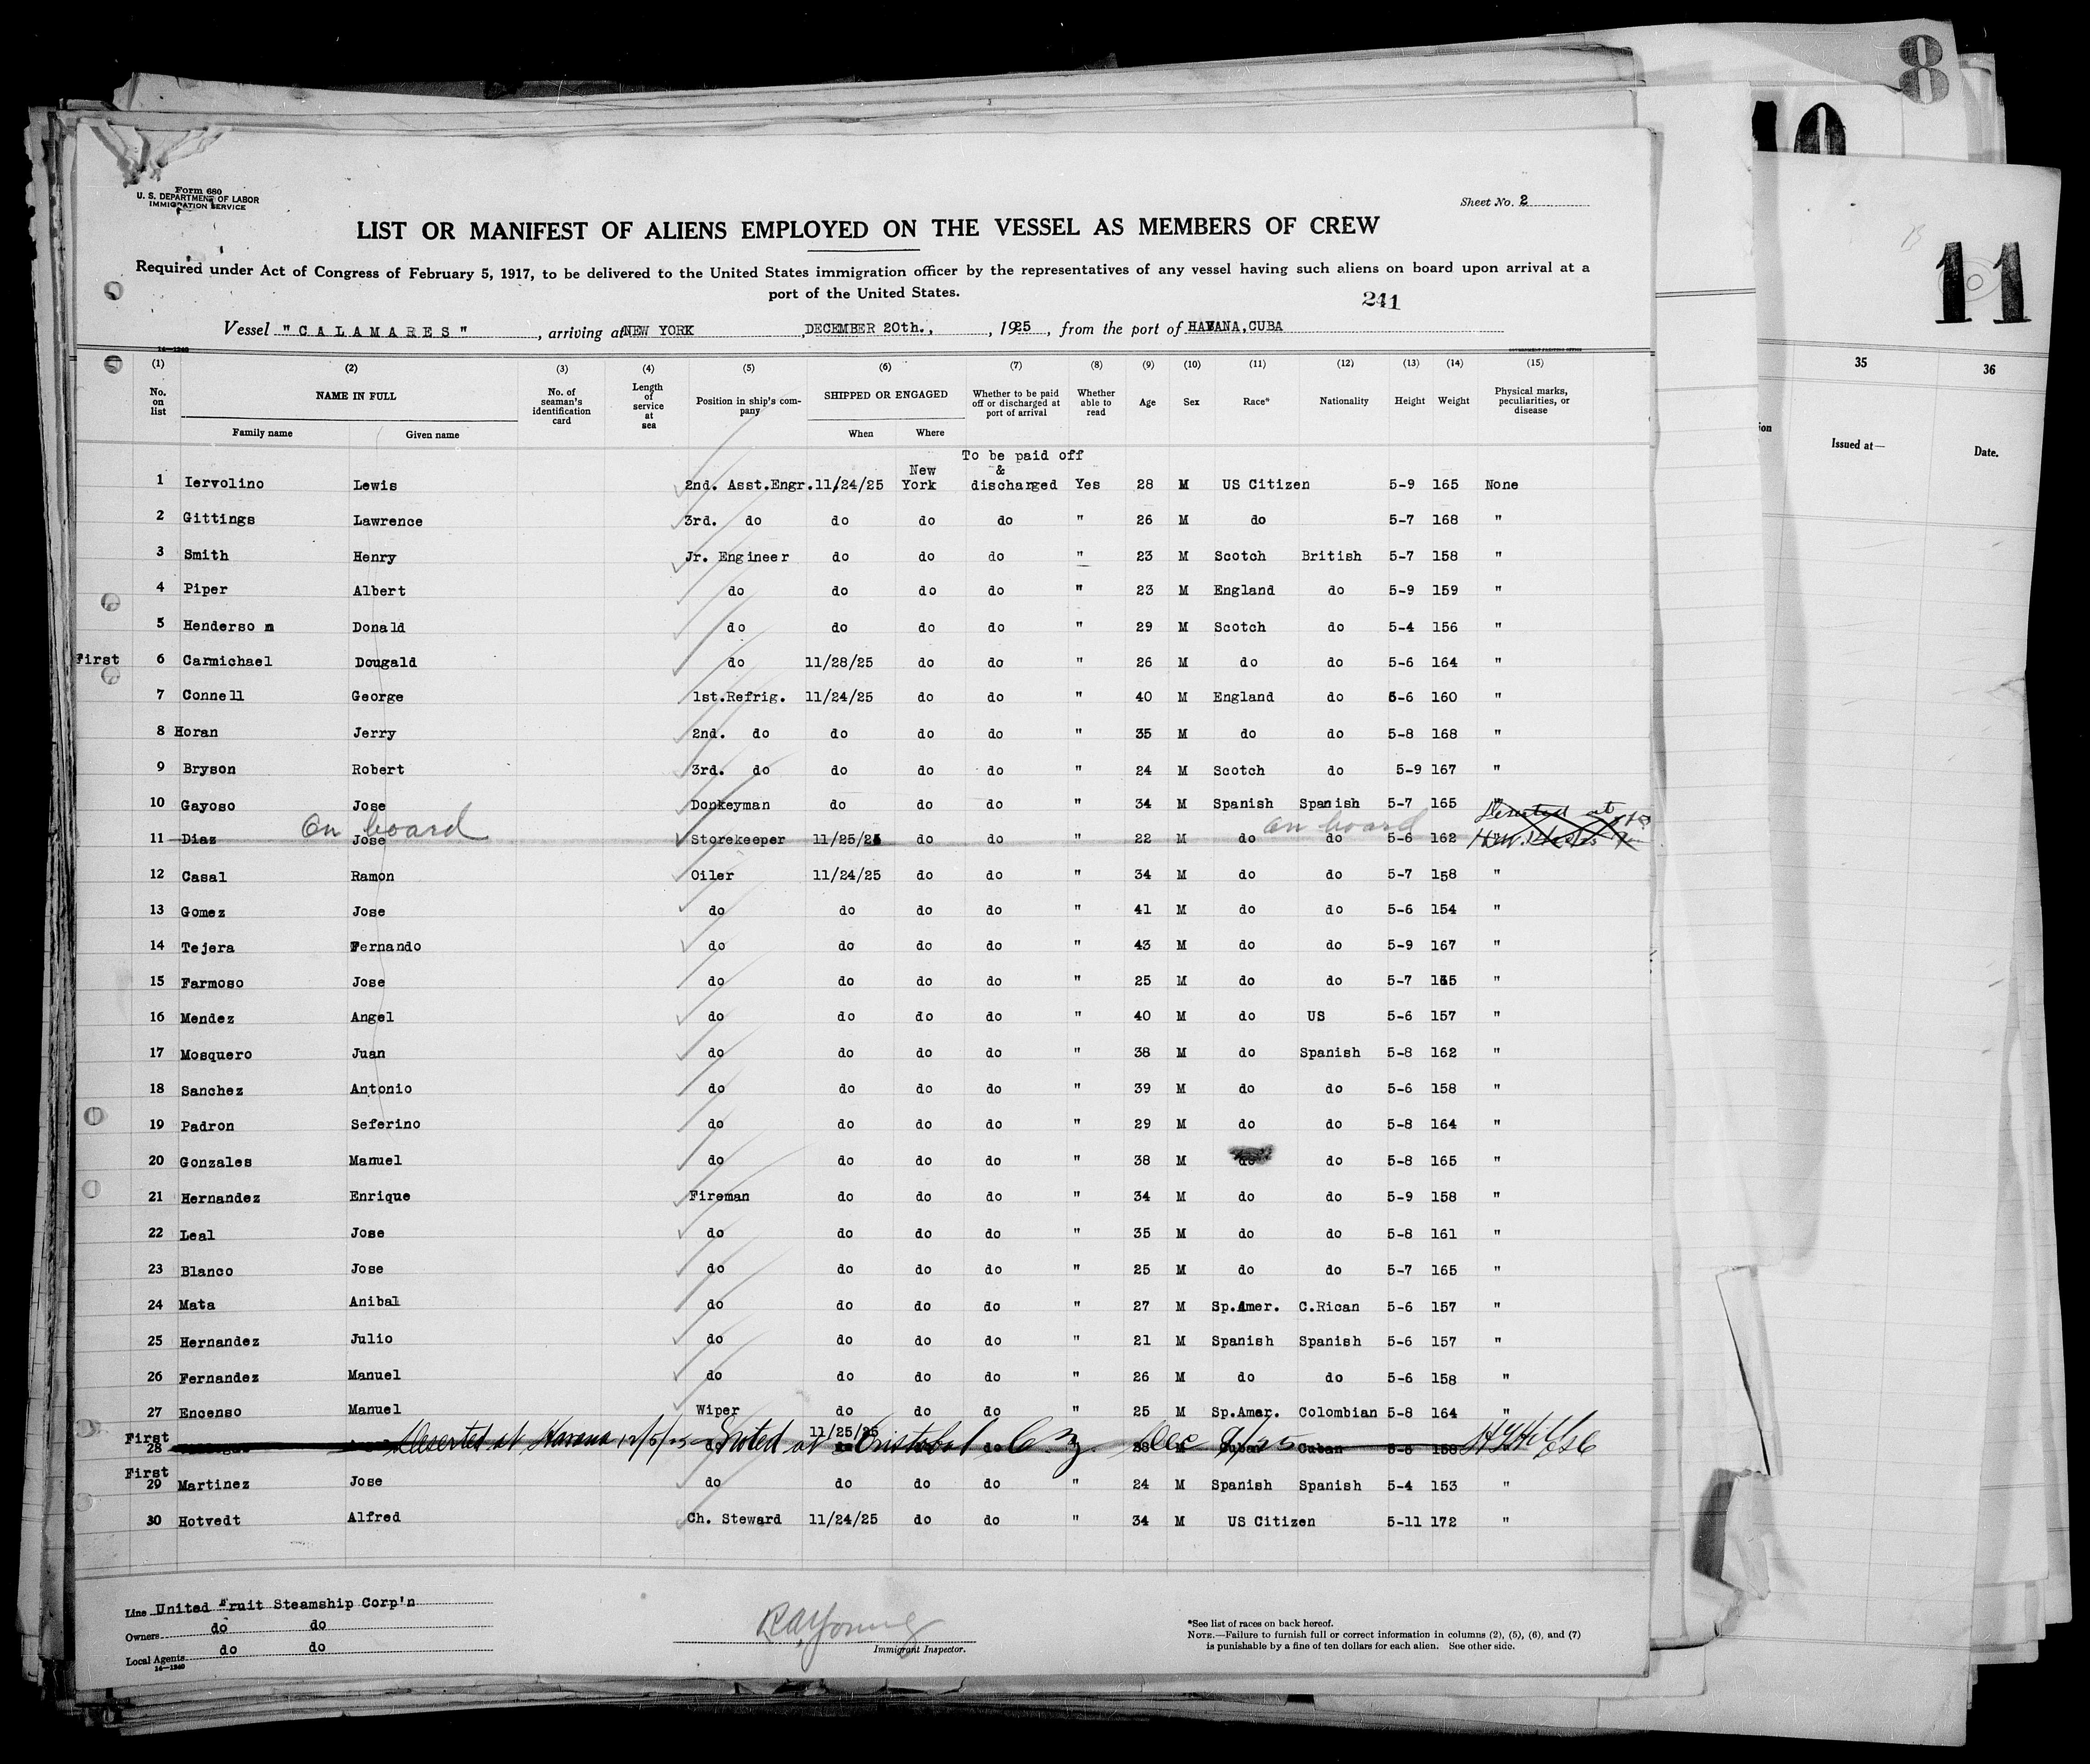 8
10
11
Form 680
U. S. DEPARTMENT OF LABOR
IMMIGRATION SERVICE
Sheet No. 2
LIST OR MANIFEST OF ALIENS EMPLOYED ON THE VESSEL AS MEMBERS OF CREW
Required under Act of Congress of February 5, 1917, to be delivered to the United States immigration officer by the representatives of any vessel having such aliens on board upon arrival at a
port of the United States.
241
Vessel "CALAMARES", arriving at NEW YORK, DECEMBER 20th., 1925, from the port of HAVANA, CUBA
14—1240 GOVERNMENT PRINTING OFFICE
(1) (2) (3) (4) (5) (6) (7) (8) (9) (10) (11) (12) (13) (14) (15)
No. on list NAME IN FULL No. of seaman's identification card Length of service at sea Position in ship's company SHIPPED OR ENGAGED Whether to be paid off or discharged at port of arrival Whether able to read Age Sex Race* Nationality Height Weight Physical marks, peculiarities, or disease
Family name Given name When Where
35 36
Issued at— Date.
To be paid off
New &
1 Iervolino Lewis 2nd. Asst.Engr. 11/24/25 York discharged Yes 28 M US Citizen 5-9 165 None
2 Gittings Lawrence 3rd. do do do do " 26 M do 5-7 168 "
3 Smith Henry Jr. Engineer do do do " 23 M Scotch British 5-7 158 "
4 Piper Albert do do do do " 23 M England do 5-9 159 "
5 Henderson Donald do do do do " 29 M Scotch do 5-4 156 "
First 6 Carmichael Dougald do 11/28/25 do do " 26 M do do 5-6 164 "
7 Connell George 1st.Refrig. 11/24/25 do do " 40 M England do 5-6 160 "
8 Horan Jerry 2nd. do do do do " 35 M do do 5-8 168 "
9 Bryson Robert 3rd. do do do do " 24 M Scotch do 5-9 167 "
10 Gayoso Jose Donkeyman do do do " 34 M Spanish Spanish 5-7 165 "
On board on board
11 Diaz Jose Storekeeper 11/25/25 do do " 22 M do do 5-6 162
12 Casal Ramon Oiler 11/24/25 do do " 34 M do do 5-7 158 "
13 Gomez Jose do do do do " 41 M do do 5-6 154 "
14 Tejera Fernando do do do do " 43 M do do 5-9 167 "
15 Farmoso Jose do do do do " 25 M do do 5-7 "
16 Mendez Angel do do do do " 40 M do US 5-6 157 "
17 Mosquero Juan do do do do " 38 M do Spanish 5-8 162 "
18 Sanchez Antonio do do do do " 39 M do do 5-6 158 "
19 Padron Seferino do do do do " 29 M do do 5-8 164 "
20 Gonzales Manuel do do do do " 38 M do do 5-8 165 "
21 Hernandez Enrique Fireman do do do " 34 M do do 5-9 158 "
22 Leal Jose do do do do " 35 M do do 5-8 161 "
23 Blanco Jose do do do do " 25 M do do 5-7 165 "
24 Mata Anibal do do do do " 27 M Sp.Amer. C.Rican 5-6 157 "
25 Hernandez Julio do do do do " 21 M Spanish Spanish 5-6 157 "
26 Fernandez Manuel do do do do " 26 M do do 5-6 158 "
27 Encenso Manuel Wiper do do do " 25 M Sp.Amer. Colombian 5-8 164 "
First 11/25/25
28 Deserted at Havana Noted at Cristobal C.Z. Dec 9/25 Cuban Cuban
First
29 Martinez Jose do do do do " 24 M Spanish Spanish 5-4 153 "
30 Hotvedt Alfred Ch. Steward 11/24/25 do do " 34 M US Citizen 5-11 172 "
Line United Fruit Steamship Corp'n
Owners do do
Local Agents do do
14—1240
R A Young
Immigrant Inspector.
*See list of races on back hereof.
NOTE.—Failure to furnish full or correct information in columns (2), (5), (6), and (7)
is punishable by a fine of ten dollars for each alien. See other side.